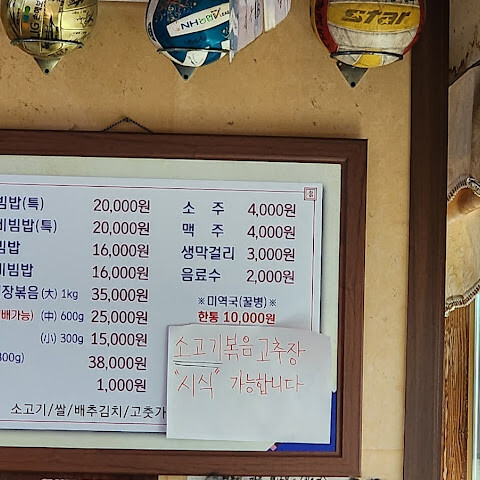 STAR
빔밥(특) 20,000원
비빔밥(특) 20,000원
빔밥 16,000원
비빔밥 16,000원
장볶음(大) 1kg 35,000원
배가능) (中) 600g 25,000원
(小) 300g 15,000원
300g) 38,000원
1,000원
소고기/쌀/배추김치/고춧가
소 주 4,000원
맥 주 4,000원
생막걸리 3,000원
음료수 2,000원
※미역국(꿀병)※
한통 10,000원
소고기볶음고추장
"시식" 가능합니다